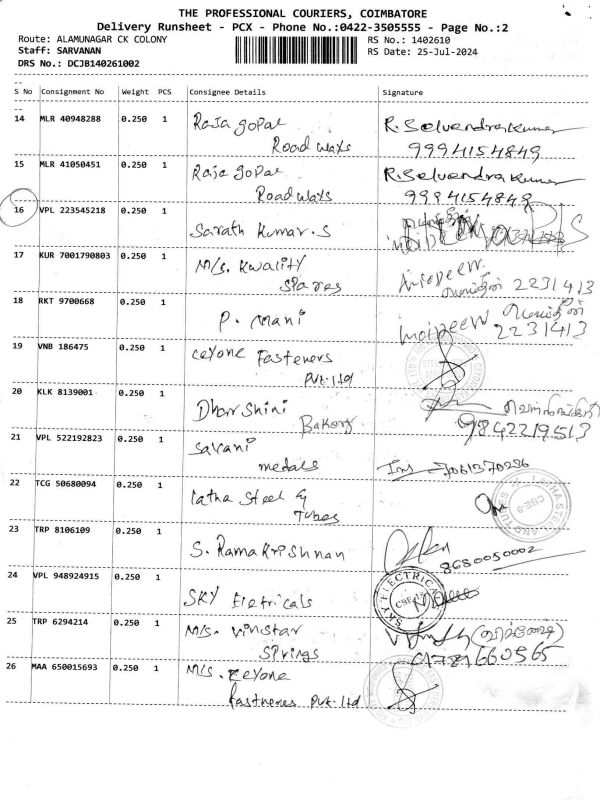 THE PROFESSIONAL COURIERS, COIMBATORE
Delivery Runsheet - PCX - Phone No.:0422-3505555 - Page No.:2
Route: ALAMUNAGAR CK COLONY
RS No.: 1402610
Staff: SARVANAN
RS Date: 25-Jul-2024
DRS No.: DCJB140261002
S No Consignment No Weight PCS Consignee Details Signature
14 MLR 40948288 0.250 1 Raja gopal R. Selvendrakumar
Road waxs 9994154849
15 MLR 41050451 0.250 1 Raja gopal R. Selvendrakumar
Road waxs 9994154849
16 VPL 223545218 0.250 1 Sarath Kumar.S
17 KUR 7001790803 0.250 1 M/s. Kwality
Spares 2231413
18 RKT 9700668 0.250 1 P. Mani
2231413
19 VNB 186475 0.250 1 ceyone Fasteners
Pvt.ltd
20 KLK 8139001 0.250 1 Dharshini
Bakery 9842219513
21 VPL 522192823 0.250 1 Savani
medals 7061370236
22 TCG 50680094 0.250 1 latha Steel &
Tubes
CBE-9
23 TRP 8106109 0.250 1 S. Ramakrishnan
8680050002
24 VPL 948924915 0.250 1 SKY Eletricals
SKY ELECTRICAL
25 TRP 6294214 0.250 1 M/s. Vinstar
Springs
26 MAA 650015693 0.250 1 M/s. Ceyone
fastneres Pvt.ltd